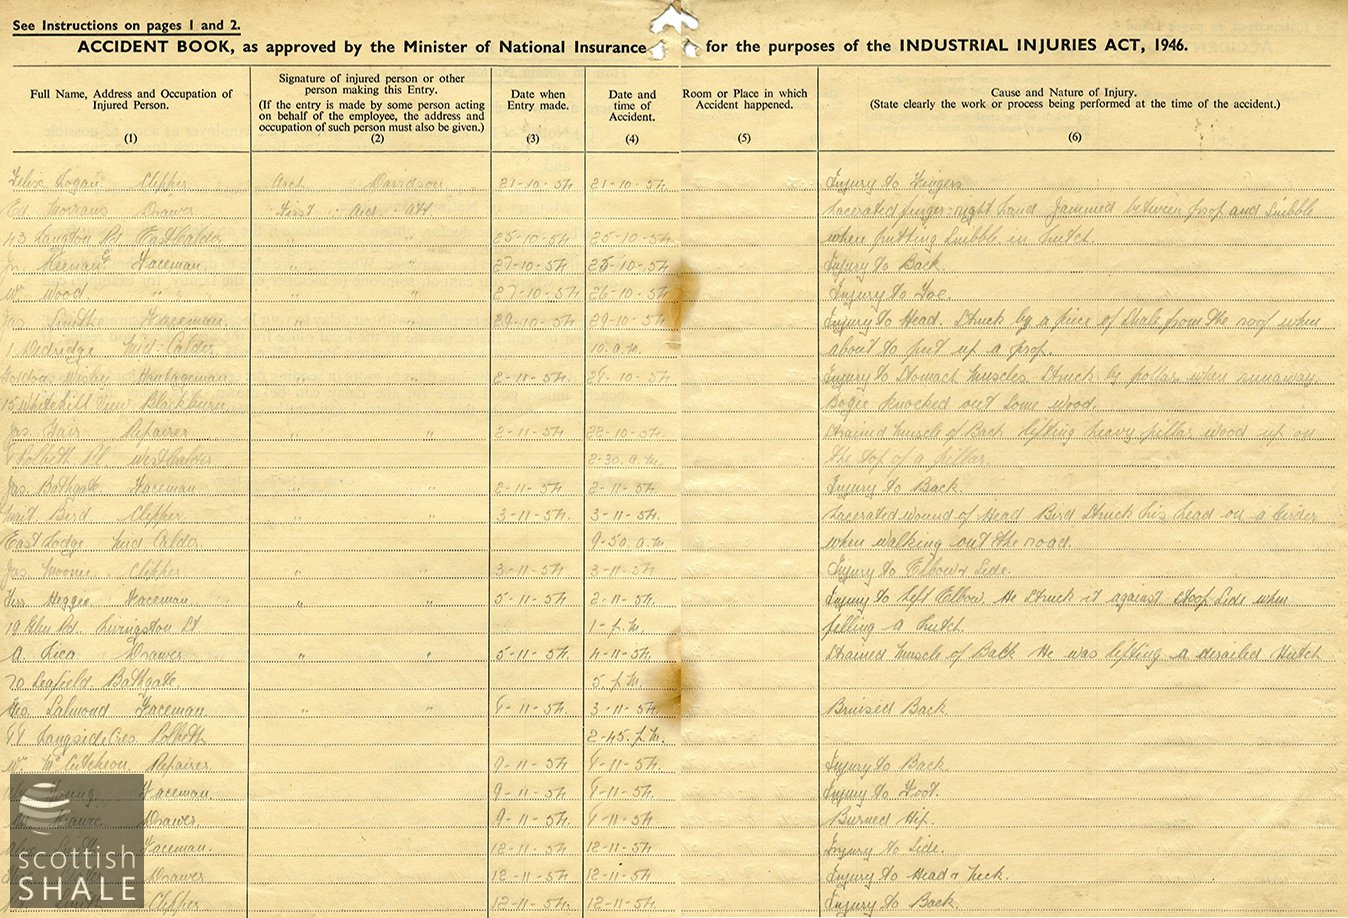 See Instructions on pages 1 and 2.
ACCIDENT BOOK, as approved by the Minister of National Insurance for the purposes of the INDUSTRIAL INJURIES ACT, 1946.
Full Name, Address and Occupation of Injured Person. (1)
Signature of injured person or other person making this Entry. (If the entry is made by some person acting on behalf of the employee, the address and occupation of such person must also be given.) (2)
Date when Entry made. (3)
Date and time of Accident. (4)
Room or Place in which Accident happened. (5)
Cause and Nature of Injury. (State clearly the work or process being performed at the time of the accident.) (6)
Felix Logan Clipper Arch Davidson 21-10-54 21-10-54 Injury to Fingers
Ed Drawer First Aid Att Lacerated finger-right hand jammed between prop and Snibble
43 Langton Rd East Calder " " 25-10-54 25-10-54 when putting Snibble in hutch
Jn. Keenan Faceman " " 27-10-54 25-10-54 Injury to Back.
Wm Wood " " " " 27-10-54 26-10-54 Injury to Toe.
Jas Smith Faceman " " 29-10-54 29-10-54 Injury to Head. Struck by a piece of Shale from the roof when
1 Mid-Calder 10. a.m. about to put up a prop.
Gordon " " 2-11-54 29-10-54 Injury to Stomach Muscles Struck by when runaway
15 Whitehill View Blackburn Bogie knocked out some wood.
Jas. Fair Repairer " " 2-11-54 22-10-54 Strained Muscle of Back lifting heavy pillar wood up on
Polbeth Pl West Calder 2-30. a.m. the top of a pillar.
Jas Bathgate Faceman " " 2-11-54 2-11-54 Injury to Back.
Bird Clipper " " 3-11-54 3-11-54 Lacerated wound of Head Bird Struck his head on a
East Lodge Mid Calder 9-50. a.m when walking out the road.
Jas Moonie Clipper " " 3-11-54 3-11-54 Injury to Elbow & Side.
Heggie Faceman " " 5-11-54 2-11-54 Injury to left Elbow. He struck it against Stoop Side when
19 Rd. Livingston St 1-p.m. filling a hutch.
A. Drawer " " 5-11-54 4-11-54 Strained Muscle of Back He was lifting a derailed Hutch
70 Leafield Bathgate. 5. p.m.
Geo. Salmond Faceman " " 3-11-54 Bruised Back
Langside Cres. Polbeth 2-45. p.m.
Wm McCutcheon Repairer 9-11-54 Injury to Back
Young Faceman 9-11-54 Injury to Foot.
Drawer 9-11-54 Hip.
Faceman. 12-11-54 12-11-54 Injury to Side.
Drawer 12-11-54 12-11-54 Injury to Head & Neck.
Smith Clipper 12-11-54 12-11-54 Injury to Back.
scottish
SHALE